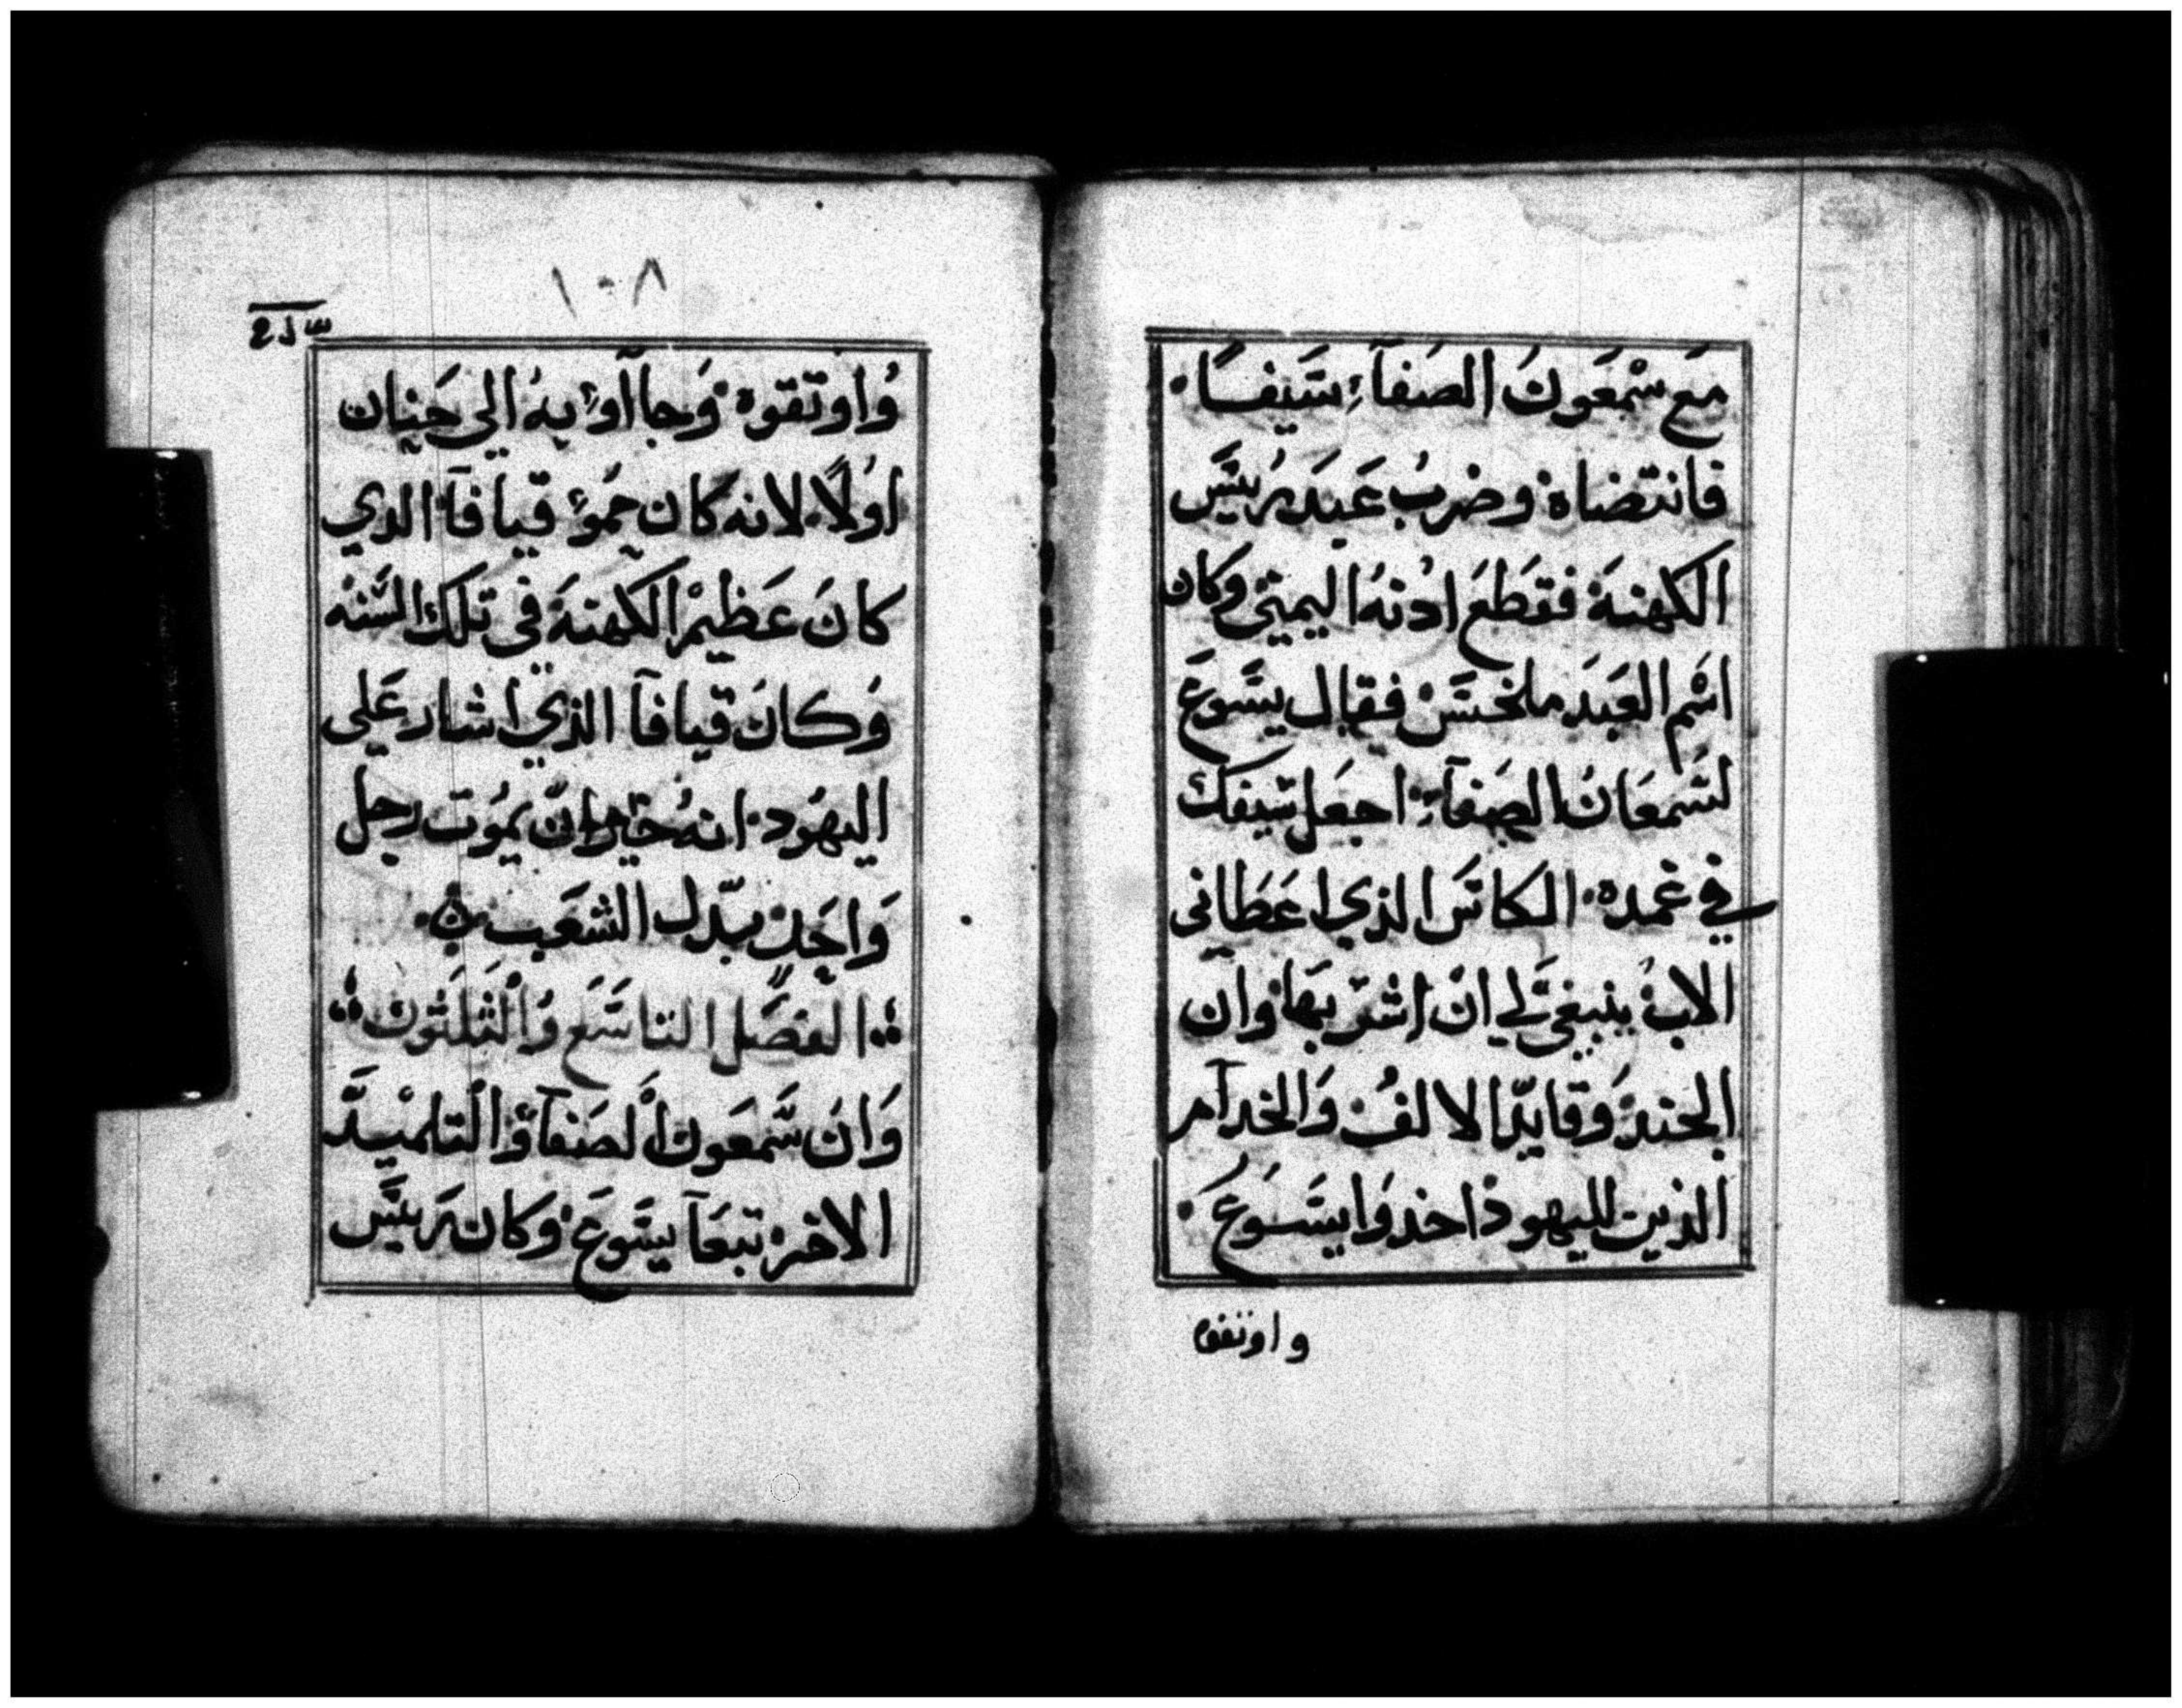 مَع سْمعَون الصَفآءِ سَيفاً·
فانتضاهْ وضربُ عَبدَ رُيَيسَ
الكهنهَ فقَطعَ ادُنهُ اليميَني وكان
اسْم العَبدَ ملخسَنْ فقال يسَوعَ
لسَمعَانُ الصَفآءِ· احبعَل سَيفكَ
في غمده· الكاسَ الذي اعَطاني
الاب ينبغيَ لي انْ اشرَبهَا وان
الجند وَقايدّ الالفُ وَالخدآمر
الذين لليهود اخدوَا يسَوعَ·
واوثقوه
١٠٨
وُاوثقوه وَجاآوءِ بهُ الي حَنان
اوُلاً· لانه كان حموُ قيافآ الدي
كانَ عَظيمْ الكهنهَ في تلك السَنه
وَكانَ قيافآ الذي اشار عَلي
اليهوُد· انهُ خير ان يموُت رجل
وَاحَد بدّل الشعَب ·
الفصَل التاسَع وُالثلثون
وَانَ سَمعَون الصَفآ وُالتلميدَ
الاخر تبعَآ يسَوعَ وكان رَييسَ